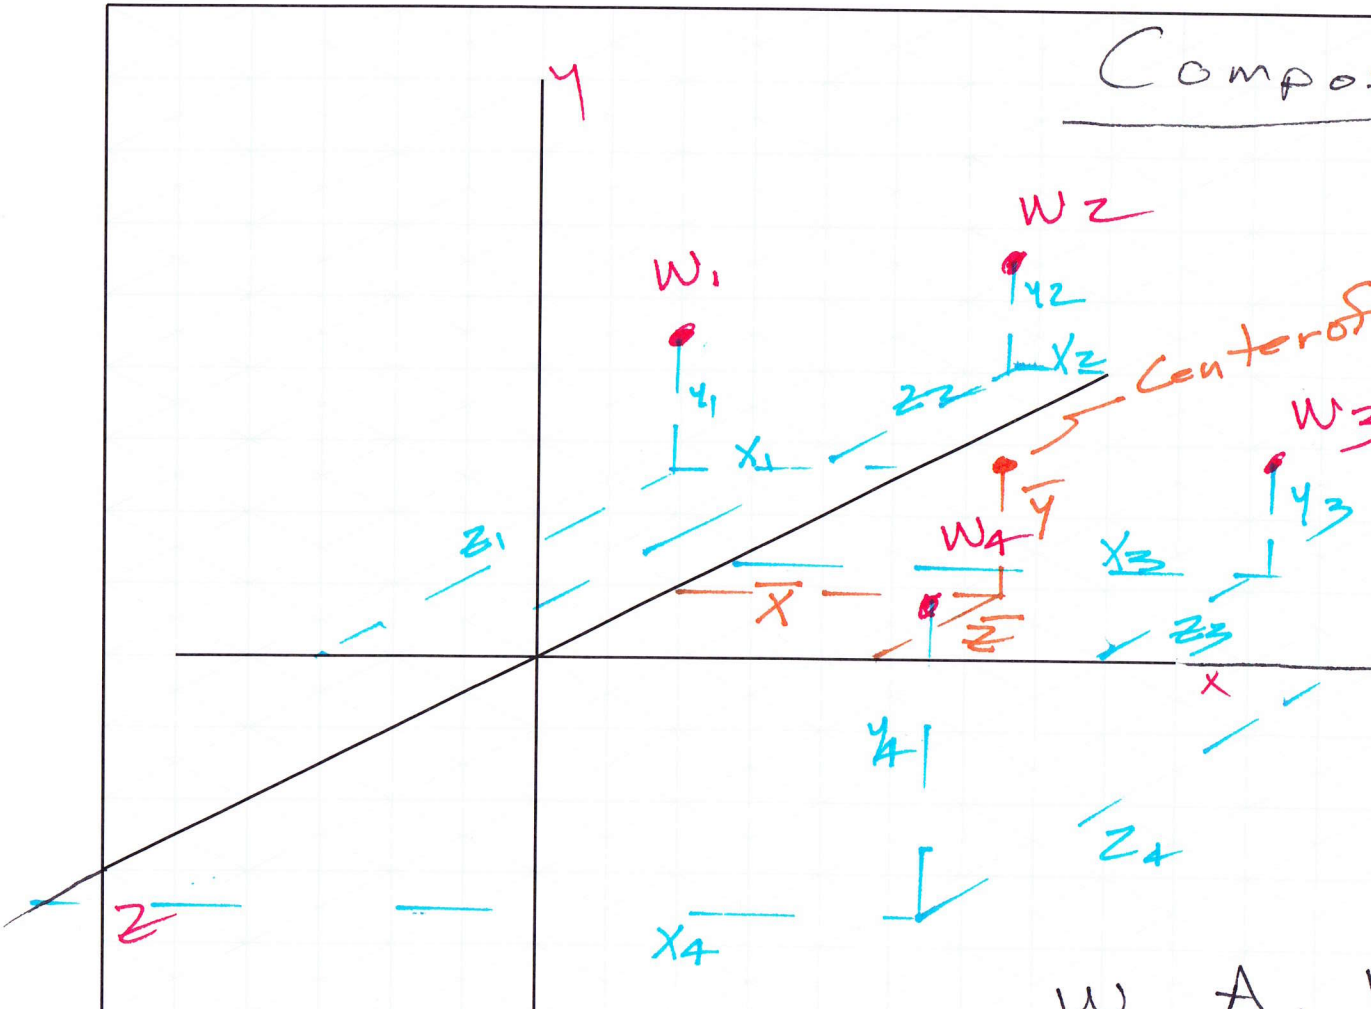 Y
Compo.
W2
W1
y2
X2
Center of
y1
Z2
W3
X1
Y̅
y3
Z1
W4
X3
X̅
Z̅
Z3
X
Y4
Z4
Z
X4
W A